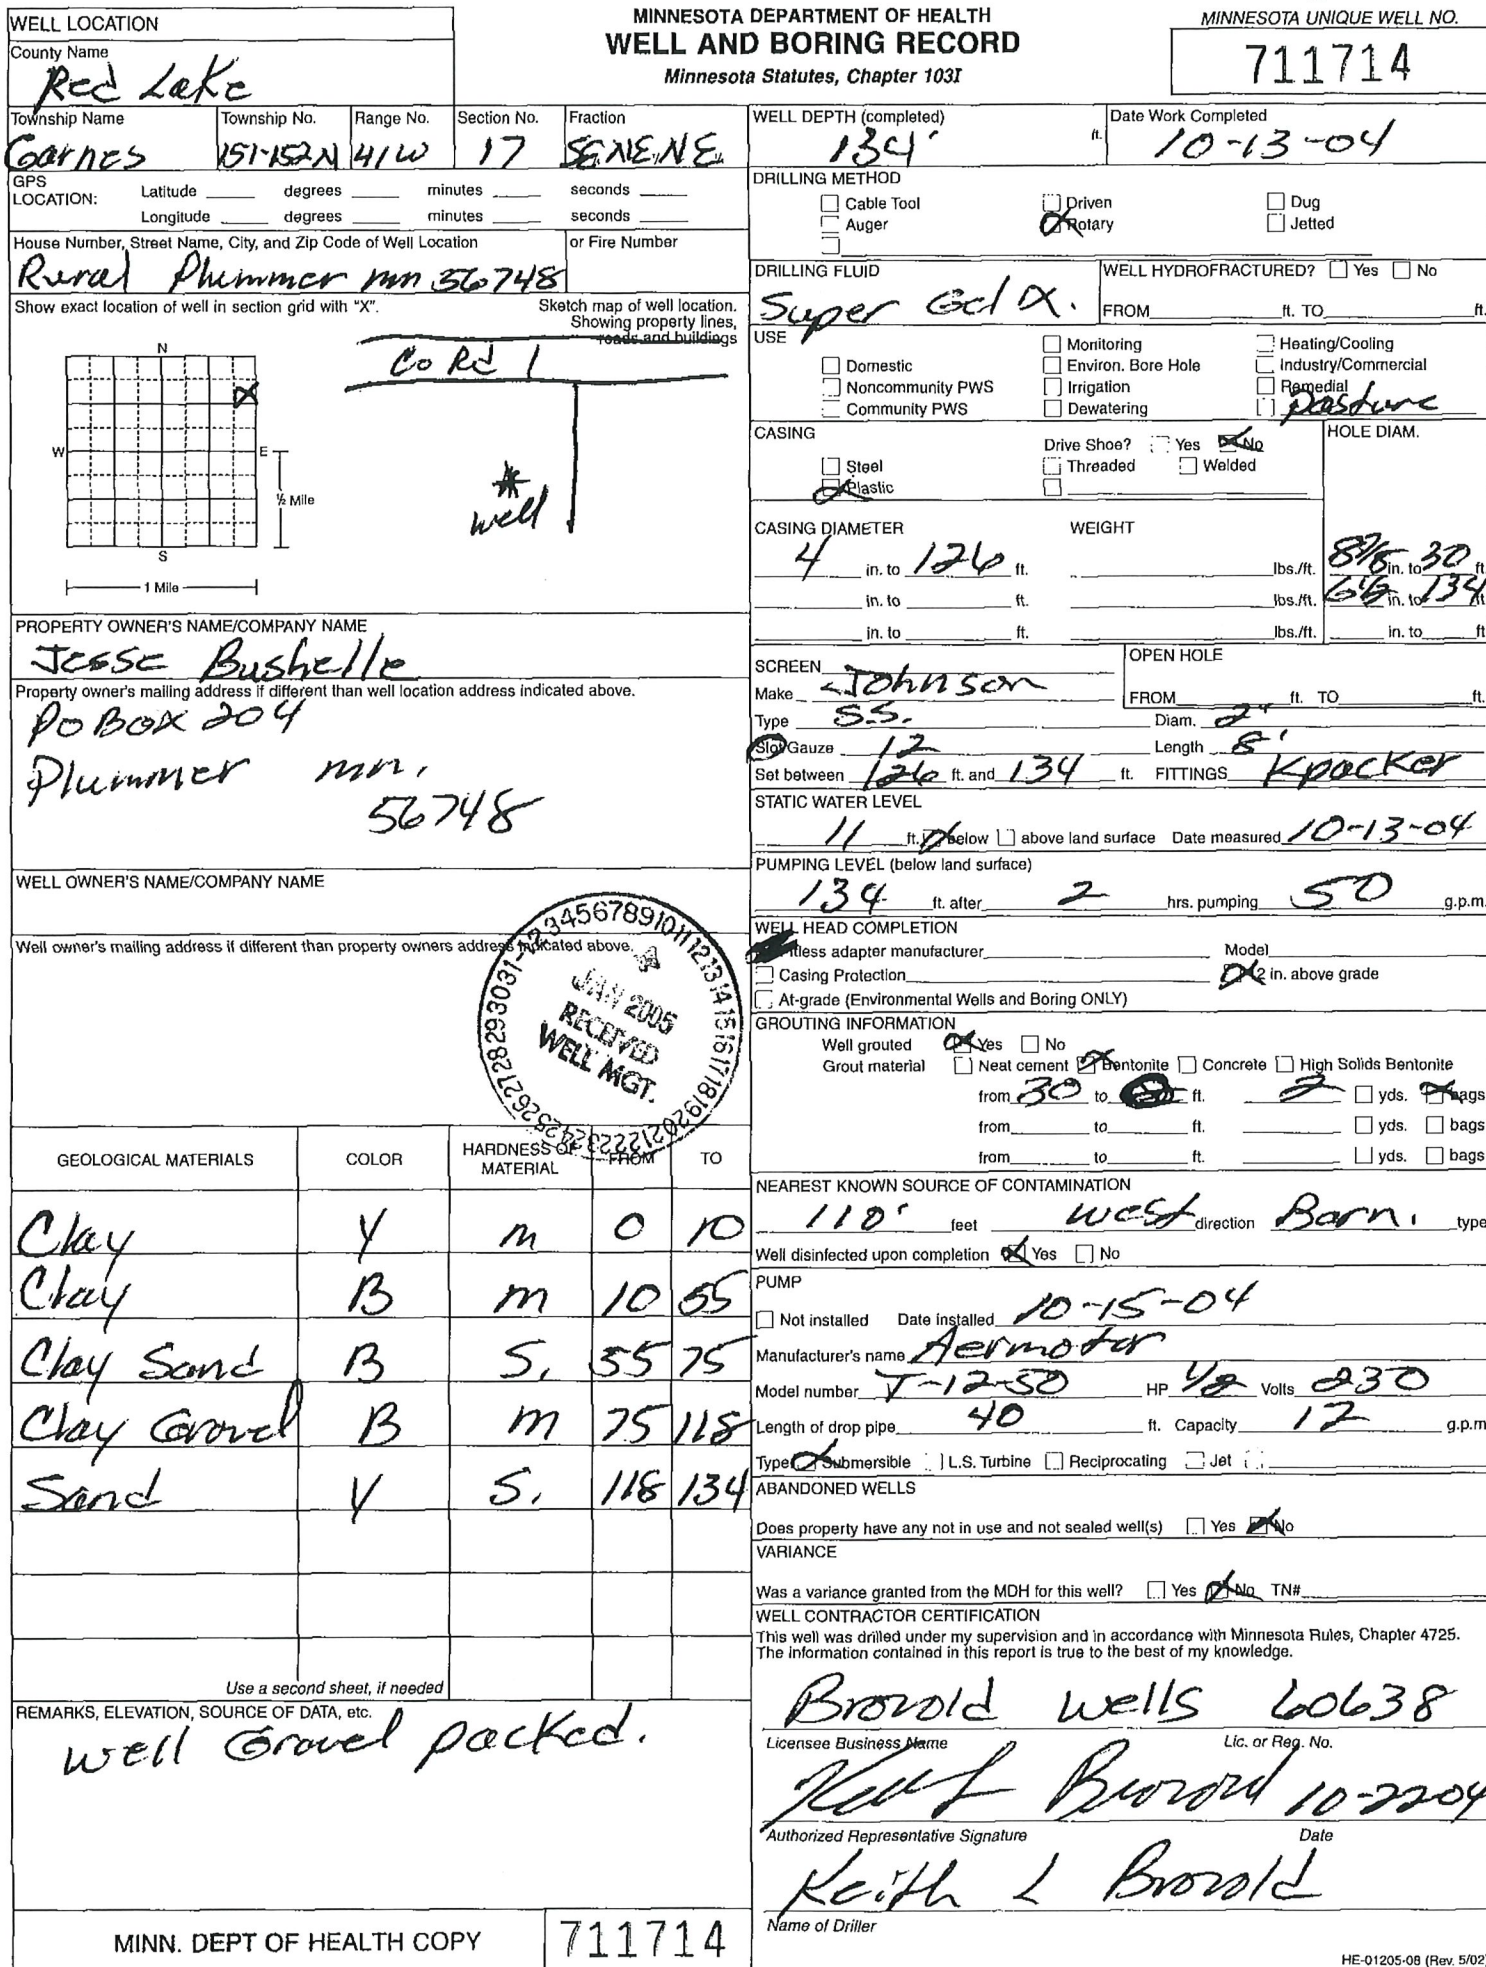 WELL LOCATION
County Name
Red Lake
MINNESOTA DEPARTMENT OF HEALTH
WELL AND BORING RECORD
Minnesota Statutes, Chapter 103I
MINNESOTA UNIQUE WELL NO.
711714
Township Name Township No. Range No. Section No. Fraction
Garnes 151-152N 41W 17 SE,NE,NE
GPS LOCATION: Latitude degrees minutes seconds
Longitude degrees minutes seconds
House Number, Street Name, City, and Zip Code of Well Location or Fire Number
Rural Plummer mn 56748
Show exact location of well in section grid with "X".
Sketch map of well location.
Showing property lines,
roads and buildings
N
W
E
S
½ Mile
1 Mile
Co Rd 1
well
PROPERTY OWNER'S NAME/COMPANY NAME
Jesse Bushelle
Property owner's mailing address if different than well location address indicated above.
PO BOX 204
Plummer mn.
56748
WELL OWNER'S NAME/COMPANY NAME
Well owner's mailing address if different than property owners address indicated above.
JAN 2005
RECEIVED
WELL MGT.
GEOLOGICAL MATERIALS COLOR HARDNESS OF MATERIAL FROM TO
Clay Y m 0 10
Clay B m 10 55
Clay Sand B S. 55 75
Clay Gravel B m 75 118
Sand Y S. 118 134
Use a second sheet, if needed
REMARKS, ELEVATION, SOURCE OF DATA, etc.
well Gravel packed.
MINN. DEPT OF HEALTH COPY 711714
WELL DEPTH (completed) ft. Date Work Completed
134' 10-13-04
DRILLING METHOD
Cable Tool Driven Dug
Auger Rotary Jetted
DRILLING FLUID
Super Gel X.
WELL HYDROFRACTURED? Yes No
FROM ft. TO ft.
USE
Monitoring Heating/Cooling
Domestic Environ. Bore Hole Industry/Commercial
Noncommunity PWS Irrigation Remedial
Community PWS Dewatering Pasture
CASING Drive Shoe? Yes No HOLE DIAM.
Steel Threaded Welded
Plastic
CASING DIAMETER WEIGHT
4 in. to 126 ft. lbs./ft. in. to 30 ft.
in. to ft. lbs./ft. in. to 134 ft.
in. to ft. lbs./ft. in. to ft.
SCREEN
Make Johnson
OPEN HOLE
FROM ft. TO ft.
Type S.S. Diam. 2"
Slot/Gauze 12 Length 8'
Set between 126 ft. and 134 ft. FITTINGS Kpacker
STATIC WATER LEVEL
11 ft. below above land surface Date measured 10-13-04
PUMPING LEVEL (below land surface)
134 ft. after 2 hrs. pumping 50 g.p.m.
WELL HEAD COMPLETION
Pitless adapter manufacturer Model
Casing Protection 12 in. above grade
At-grade (Environmental Wells and Boring ONLY)
GROUTING INFORMATION
Well grouted Yes No
Grout material Neat cement Bentonite Concrete High Solids Bentonite
from 30 to ft. 2 yds. bags
from to ft. yds. bags
from to ft. yds. bags
NEAREST KNOWN SOURCE OF CONTAMINATION
110' feet west direction Barn. type
Well disinfected upon completion Yes No
PUMP
Not installed Date installed 10-15-04
Manufacturer's name Aermotor
Model number T-12-50 HP 1/2 Volts 230
Length of drop pipe 40 ft. Capacity 12 g.p.m
Type Submersible L.S. Turbine Reciprocating Jet
ABANDONED WELLS
Does property have any not in use and not sealed well(s) Yes No
VARIANCE
Was a variance granted from the MDH for this well? Yes No TN#
WELL CONTRACTOR CERTIFICATION
This well was drilled under my supervision and in accordance with Minnesota Rules, Chapter 4725.
The information contained in this report is true to the best of my knowledge.
Brovold wells 60638
Licensee Business Name Lic. or Reg. No.
Keith L Brovold 10-2204
Authorized Representative Signature Date
Keith L Brovold
Name of Driller
HE-01205-08 (Rev. 5/02)